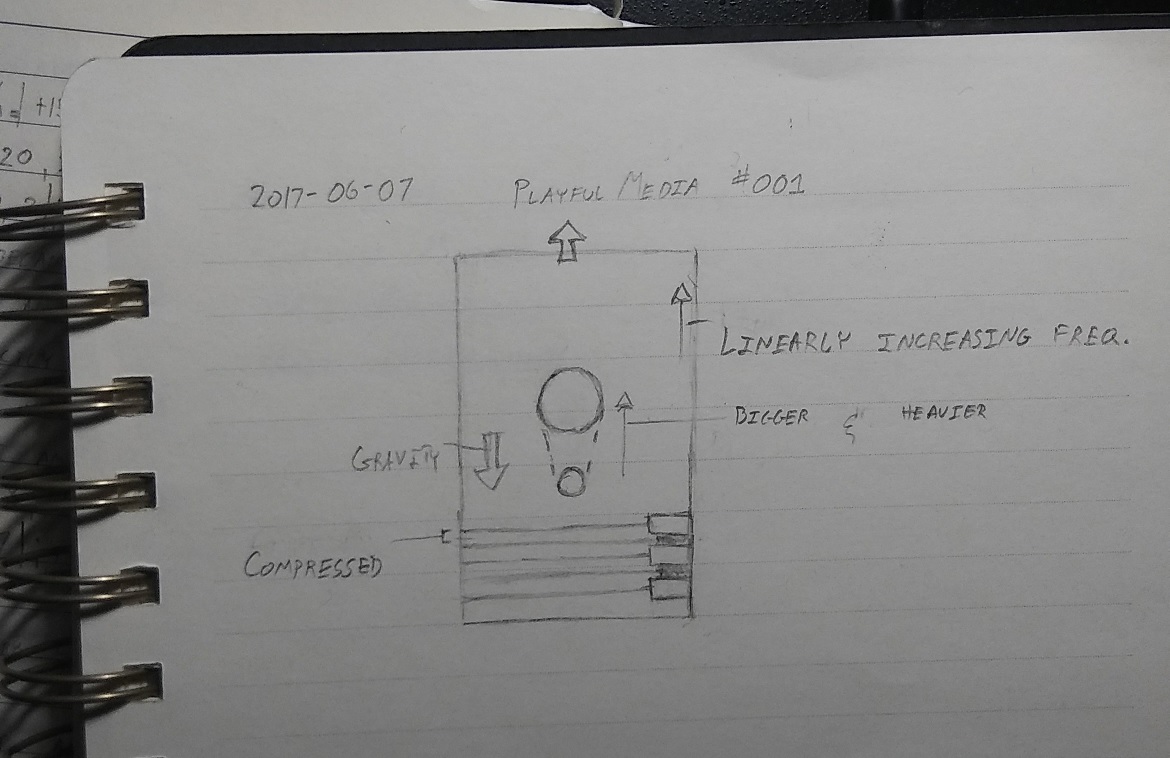 2017-06-07 PLAYFUL MEDIA #001
LINEARLY INCREASING FREQ.
BIGGER & HEAVIER
GRAVITY
COMPRESSED
20